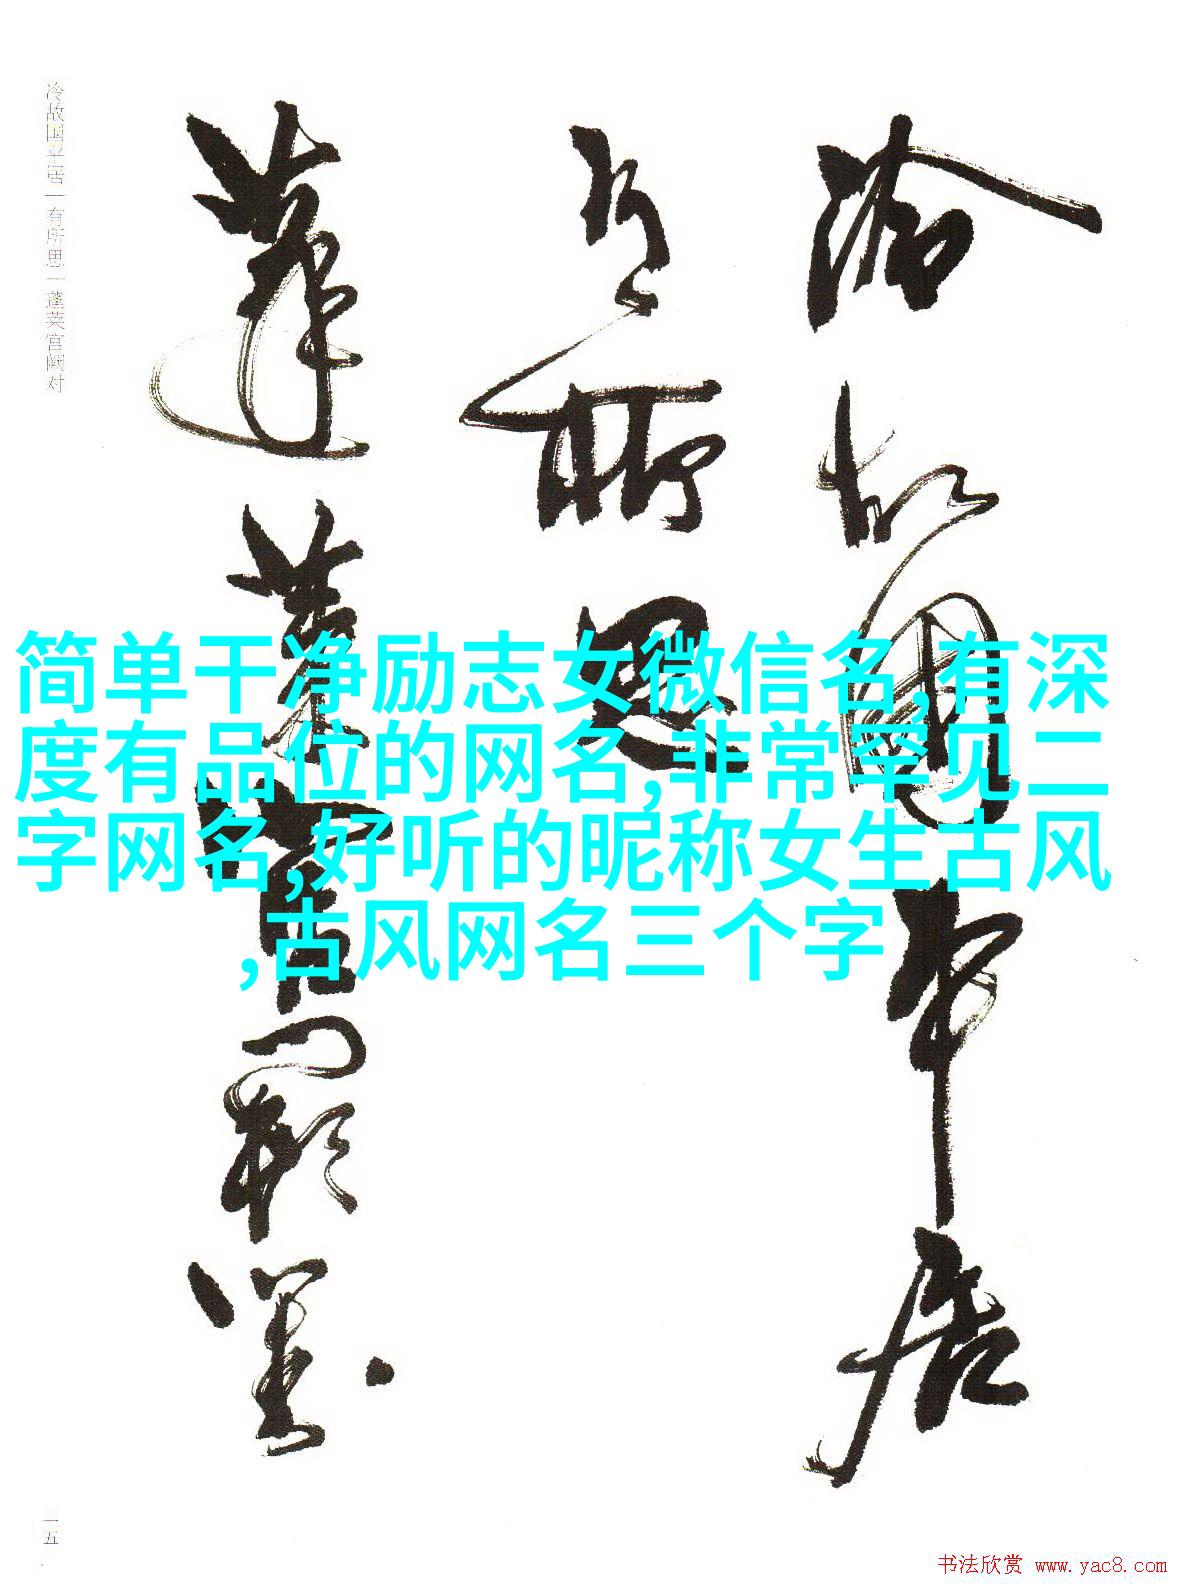 冷故國平居
有所思
蓬萊宮闕對
冷故国平居|有所思|蓬莱宫阙对
简单干净励志女微信名,有深
度有品位的网名,非常罕见二
字网名,好听的昵称女生古风
,古风网名三个字
一五
书法欣赏 www.yac8.com